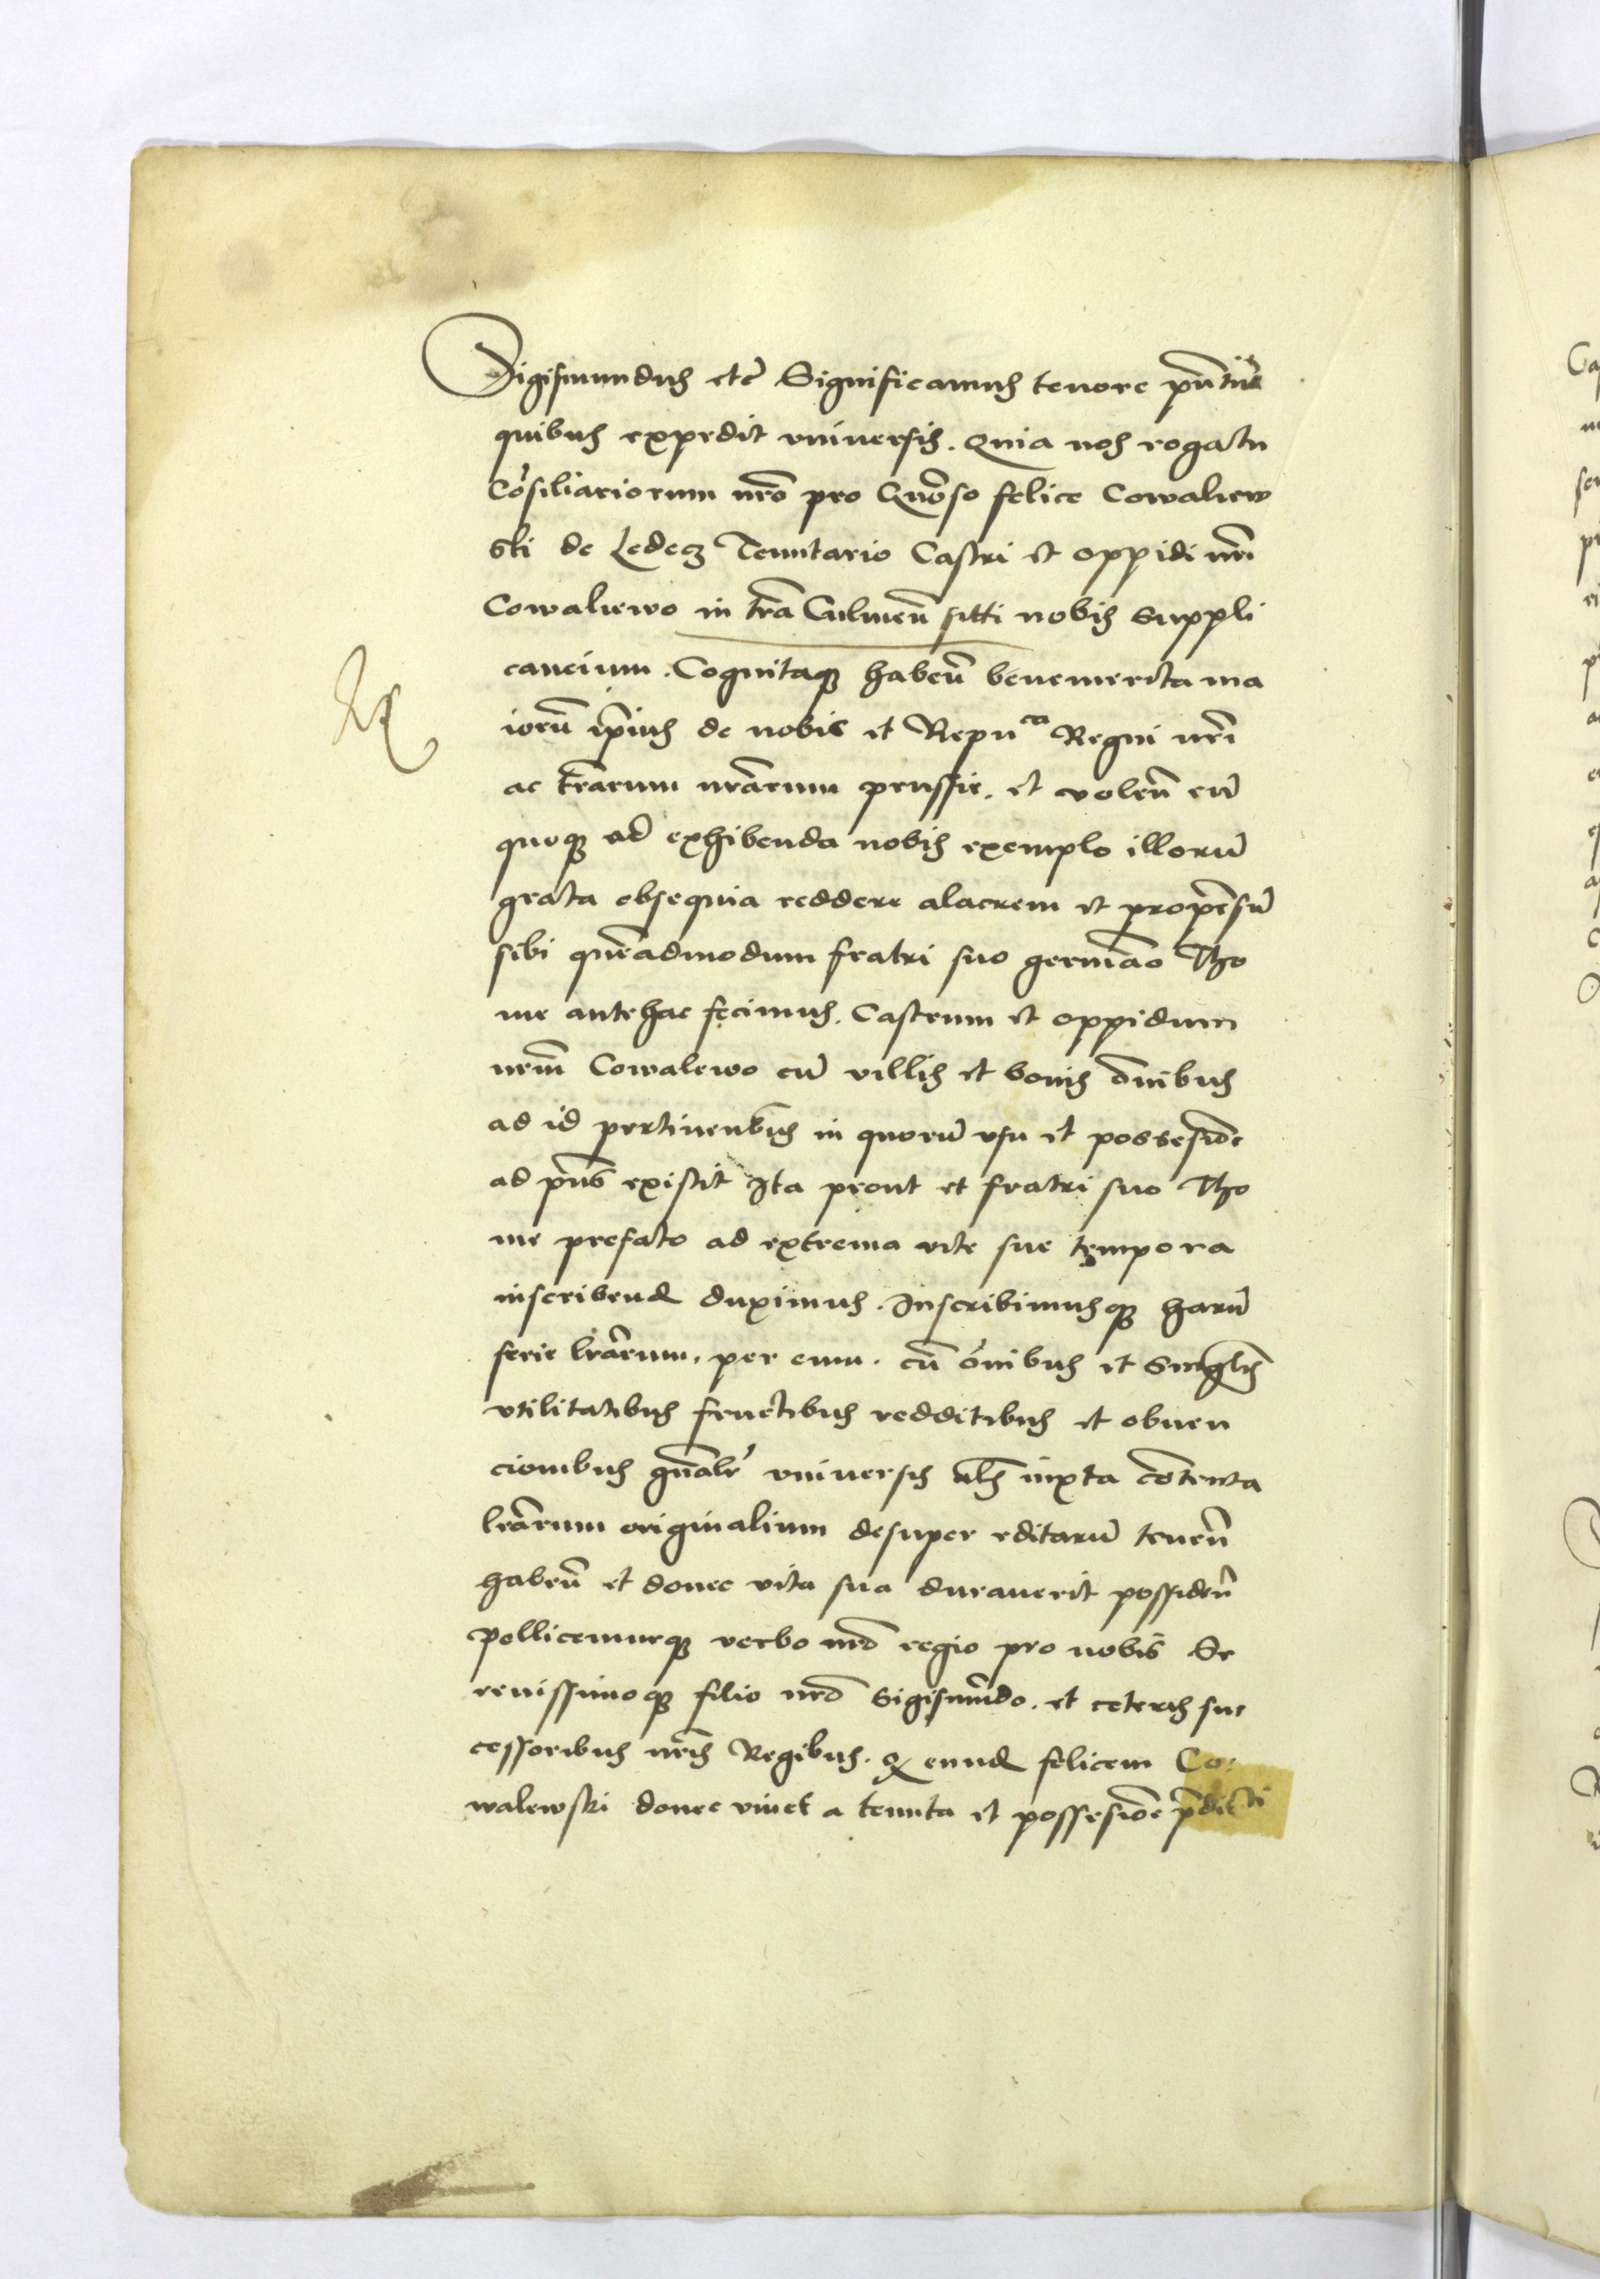 Sigismundus etc̃ Significamus tenore pñtiũ
quibus expedit vniversis. Quia nos rogatu
Cõsiliariorum nrõ pro Gñoso felice Cowaliew
ski de Ledecz Tenutario Castri et oppidi nrĩ
Cowaliewo in trã Culmeñ sitti nobis suppli
cancium. Cognitaq habeñ benemerita ma
iorũ ip̃ius de nobis et Repuca Regni nrĩ
ac trãrum nrãrum prussie. et voleñ eũ
quoq ad exhibenda nobis exemplo illorũ
grata obsequia reddere alacrem et propẽsũ
sibi quẽadmodum fratri suo germão Tho
me antehac fecimus. Castrum et oppidum
nrũm Cowalewo cũ villis et bonis õnibus
ad id pertinentibus in quorũ vsu et possesiõe
ad pñs existit Ita prout et fratri suo Tho
me prefato ad extrema vite sue tempora
inscribend duximus. Inscribimusq harũ
serie lrãrum. per eum. cũ õnibus et singlis
vtilitatibus fructibus redditibus et obuen
cionibus gñalr̃ vniversis als iuxta cõtenta
lrãrum originalium desuper editarũ teneñ
habeñ et donec vita sua durauerit possideñ
pollicemurq verbo nrõ regio pro nobis Se
renissimoq filio nrõ Sigismũdo. et ceteris suc
cessoribus nrĩs Regibus. q eund felicem Co:
walewski donec viuet a tenuta et possesiõe p̃dicti